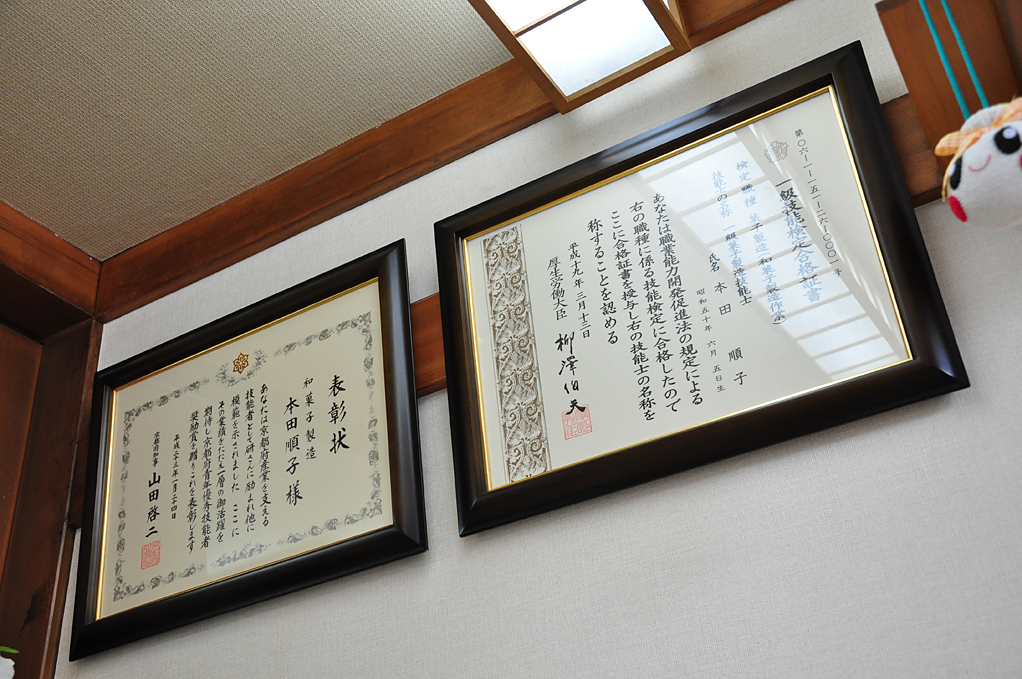 表彰状
和菓子製造
本田順子様
あなたは京都府産業を支える
技能者として研さんに励まれ他に
模範を示されました ここに
その業績をたたえ一層の御活躍を
期待し京都府青年優秀技能者
奨励賞を贈りこれを表彰します
平成二十三年一月二十四日
京都府知事 山田啓二
第〇六-一-一五一-二六-〇〇〇一号
一級技能検定合格証書
検定職種 菓子製造(和菓子製造作業)
技能士の名称 一級菓子製造技能士
氏名 本田 順子
昭和五十年 六月 五日生
あなたは職業能力開発促進法の規定による
右の職種に係る技能検定に合格したので
ここに合格証書を授与し右の技能士の名称を
称することを認める
平成十九年 三月十三日
厚生労働大臣 柳澤伯夫